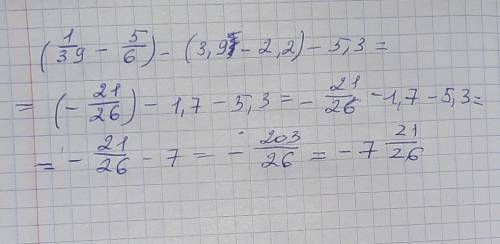 (1/39 - 5/6) - (3,9 - 2,2) - 5,3 =
= (- 21/26) - 1,7 - 5,3 = - 21/26 - 1,7 - 5,3 =
= - 21/26 - 7 = - 203/26 = - 7 21/26